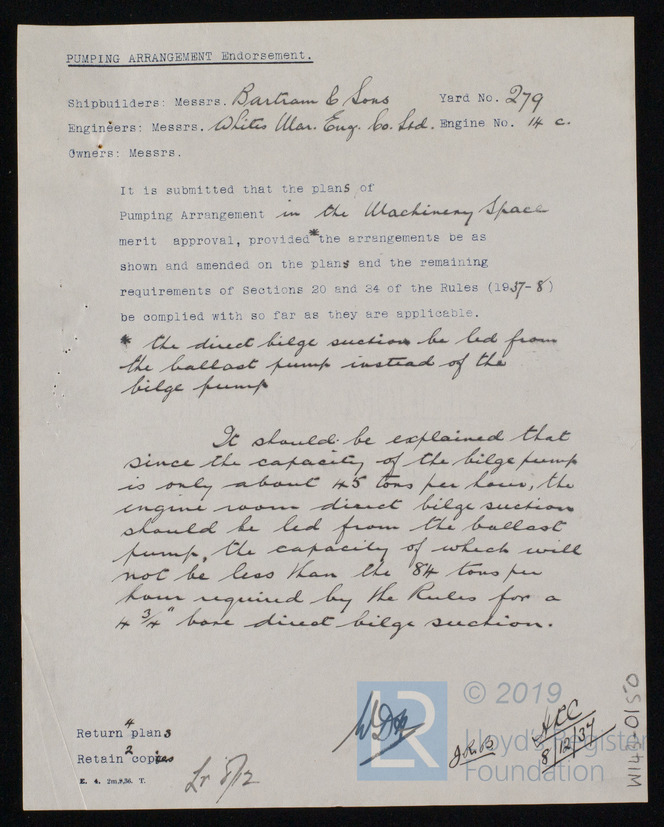 PUMPING ARRANGEMENT Endorsement.
Shipbuilders: Messrs. Bartram & Sons Yard No. 279
Engineers: Messrs. Whites Mar. Eng. Co. Ltd. Engine No. 14 c.
Owners: Messrs.
It is submitted that the plans of
Pumping Arrangement in the Machinery Space
merit approval, provided * the arrangements be as
shown and amended on the plans and the remaining
requirements of Sections 20 and 24 of the Rules (1937-8)
be complied with so far as they are applicable.
* the direct bilge suction be led from
the ballast pump instead of the
bilge pump
It should be explained that
since the capacity of the bilge pump
is only about 45 tons per hour, the
engine room direct bilge suction
should be led from the ballast
pump, the capacity of which will
not be less than the 84 tons per
hour required by the Rules for a
4 3/4" bore direct bilge suction.
Return 4 plans
Retain 2 copies
E. 4. 2m.9.36. T.
Lr 8/12
8/12/37
W148-0150
© 2019
LR
Lloyd's Register
Foundation